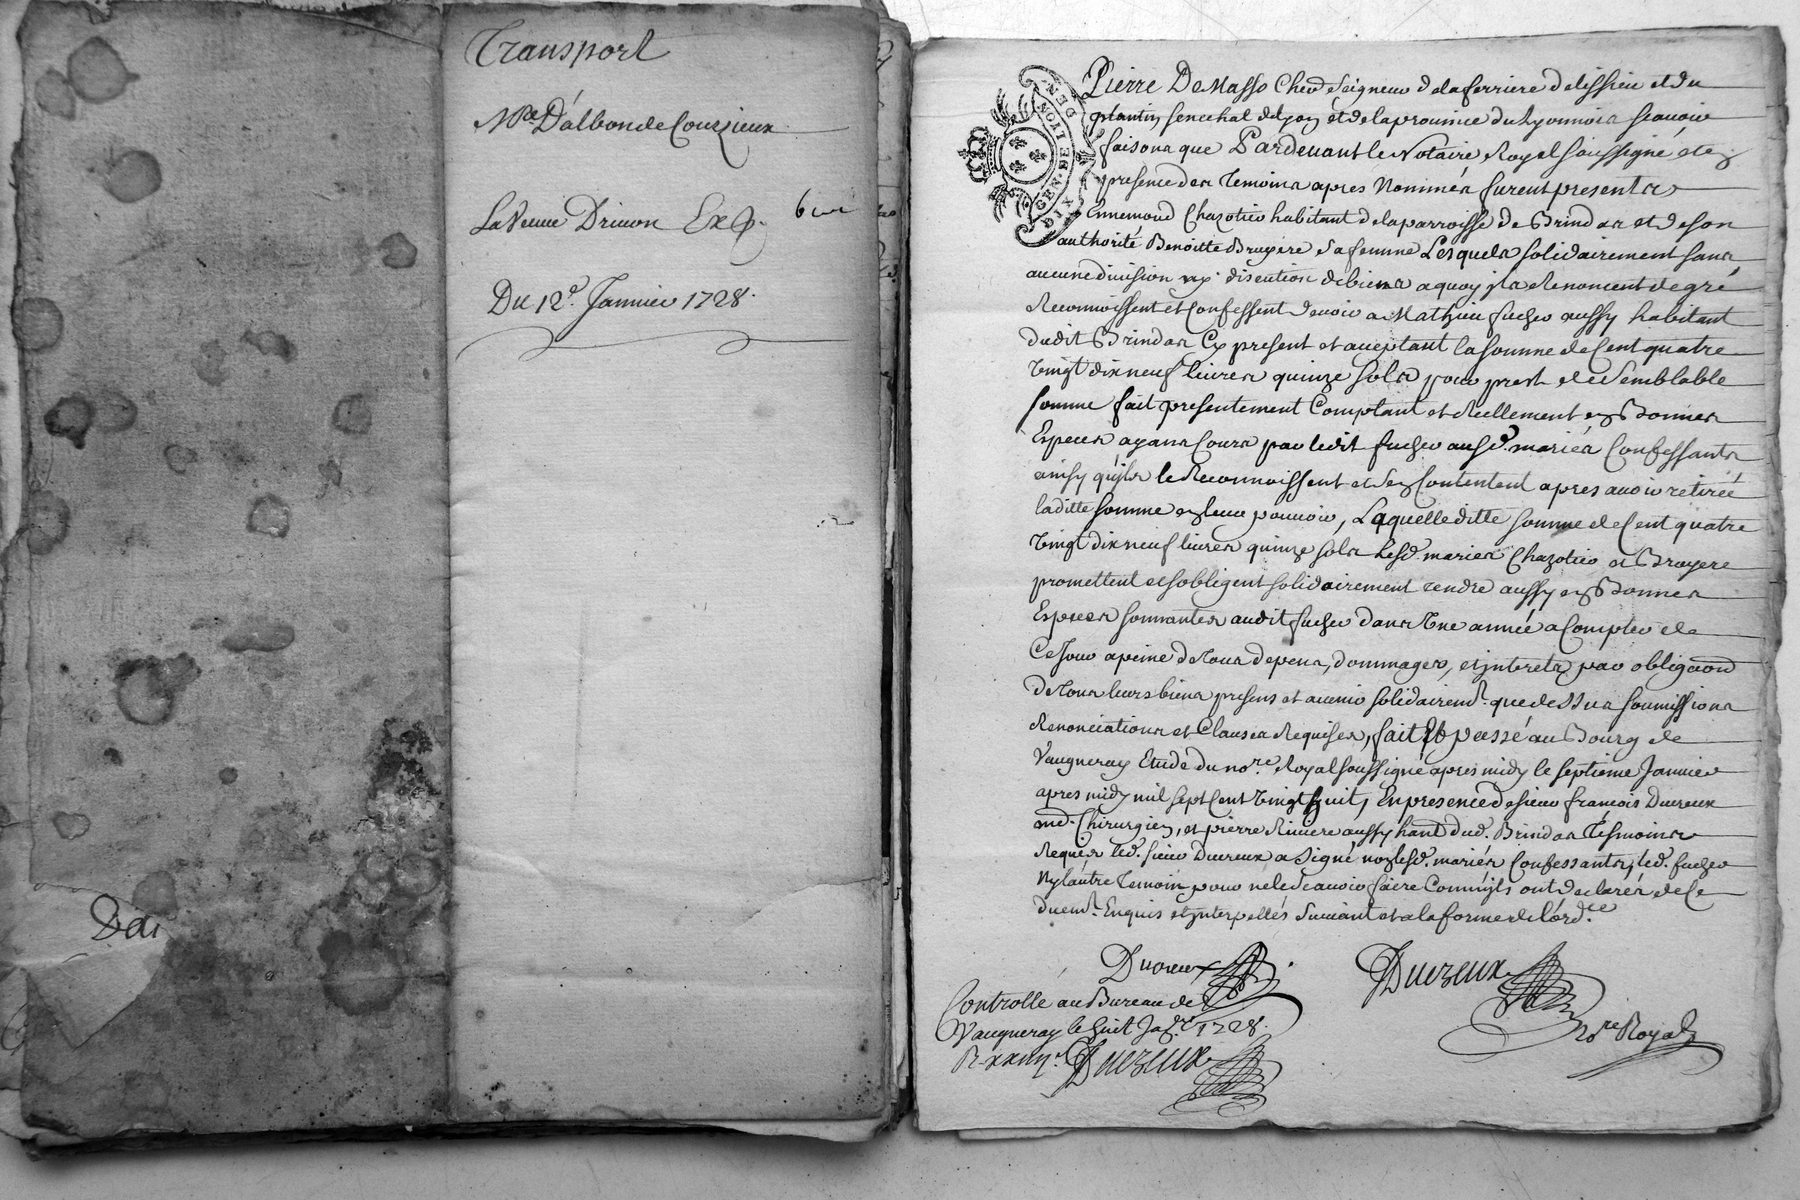 Transport
Mre D'albon de Courzieux
La Veuve Drivon Exp.
Du 12e. Janvier 1728.
Dai
GEN. DE LYON
DIX DEN.
Pierre De Masso Cher Seigneur de la ferriere de lissieu et du
plantin, senechal de lyon et de la province du Lyonnois scavoir
faisons que Pardevant le Notaire Royal soussigné et en
presence des temoins apres Nommés furent presents
Ennemond Chazotier habitant de la parroisse de Brindas et de son
authorité Benoitte Bruyere sa femme Lesquels solidairement sans
aucune division ny discution de biens a quoy ils Renoncent de gré
Reconnoissent et Confessent devoir a Mathieu fucher aussy habitant
dudit Brindas Cy present et acceptant la somme de Cent quatre
Vingt dix neuf livres quinze sols pour prest de Semblable
somme fait presentement Comptant et Reellement en Bonnes
Especes ayans Cours par ledit fucher ausd. mariés Confessants
ainsy qu'ils le Reconnoissent et s'en Contentent apres avoir retirée
laditte somme en leur pouvoir, Laquelle ditte somme de Cent quatre
Vingt dix neuf livres quinze sols lesd. mariés Chazotier et Bruyere
promettent et s'obligent solidairement rendre aussy en Bonnes
Especes sonnantes audit fucher dans Une année a Compter de
Ce Jour a peine de tous depens, dommages, et interets par obligaon
de tous leurs biens presens et avenir solidairemt. que dessus soumissions
Renonciations et Clauses Requises, fait Et passé au Bourg de
Vaugneray Etude du nore. Royal soussigné apres midy le septieme Janvier
apres midy mil sept Cent Vingt huit, En presence de sieur françois Ducreux
md. Chirurgien, et pierre Riviere aussy hant dud. Brindas Tesmoins
Requis led. sieur Ducreux a signé non lesd. mariés Confessants, led. fucher
Ny lautre temoin pour ne le scavoir faire Comm'ils ont declarés de Ce
duemt. Enquis et interpellés suivant et a la forme de l'ordce
Ducreux
Ducreux
nore Royal
Controllé au Bureau de
Vaugneray le huit Janre 1728.
Ducreux